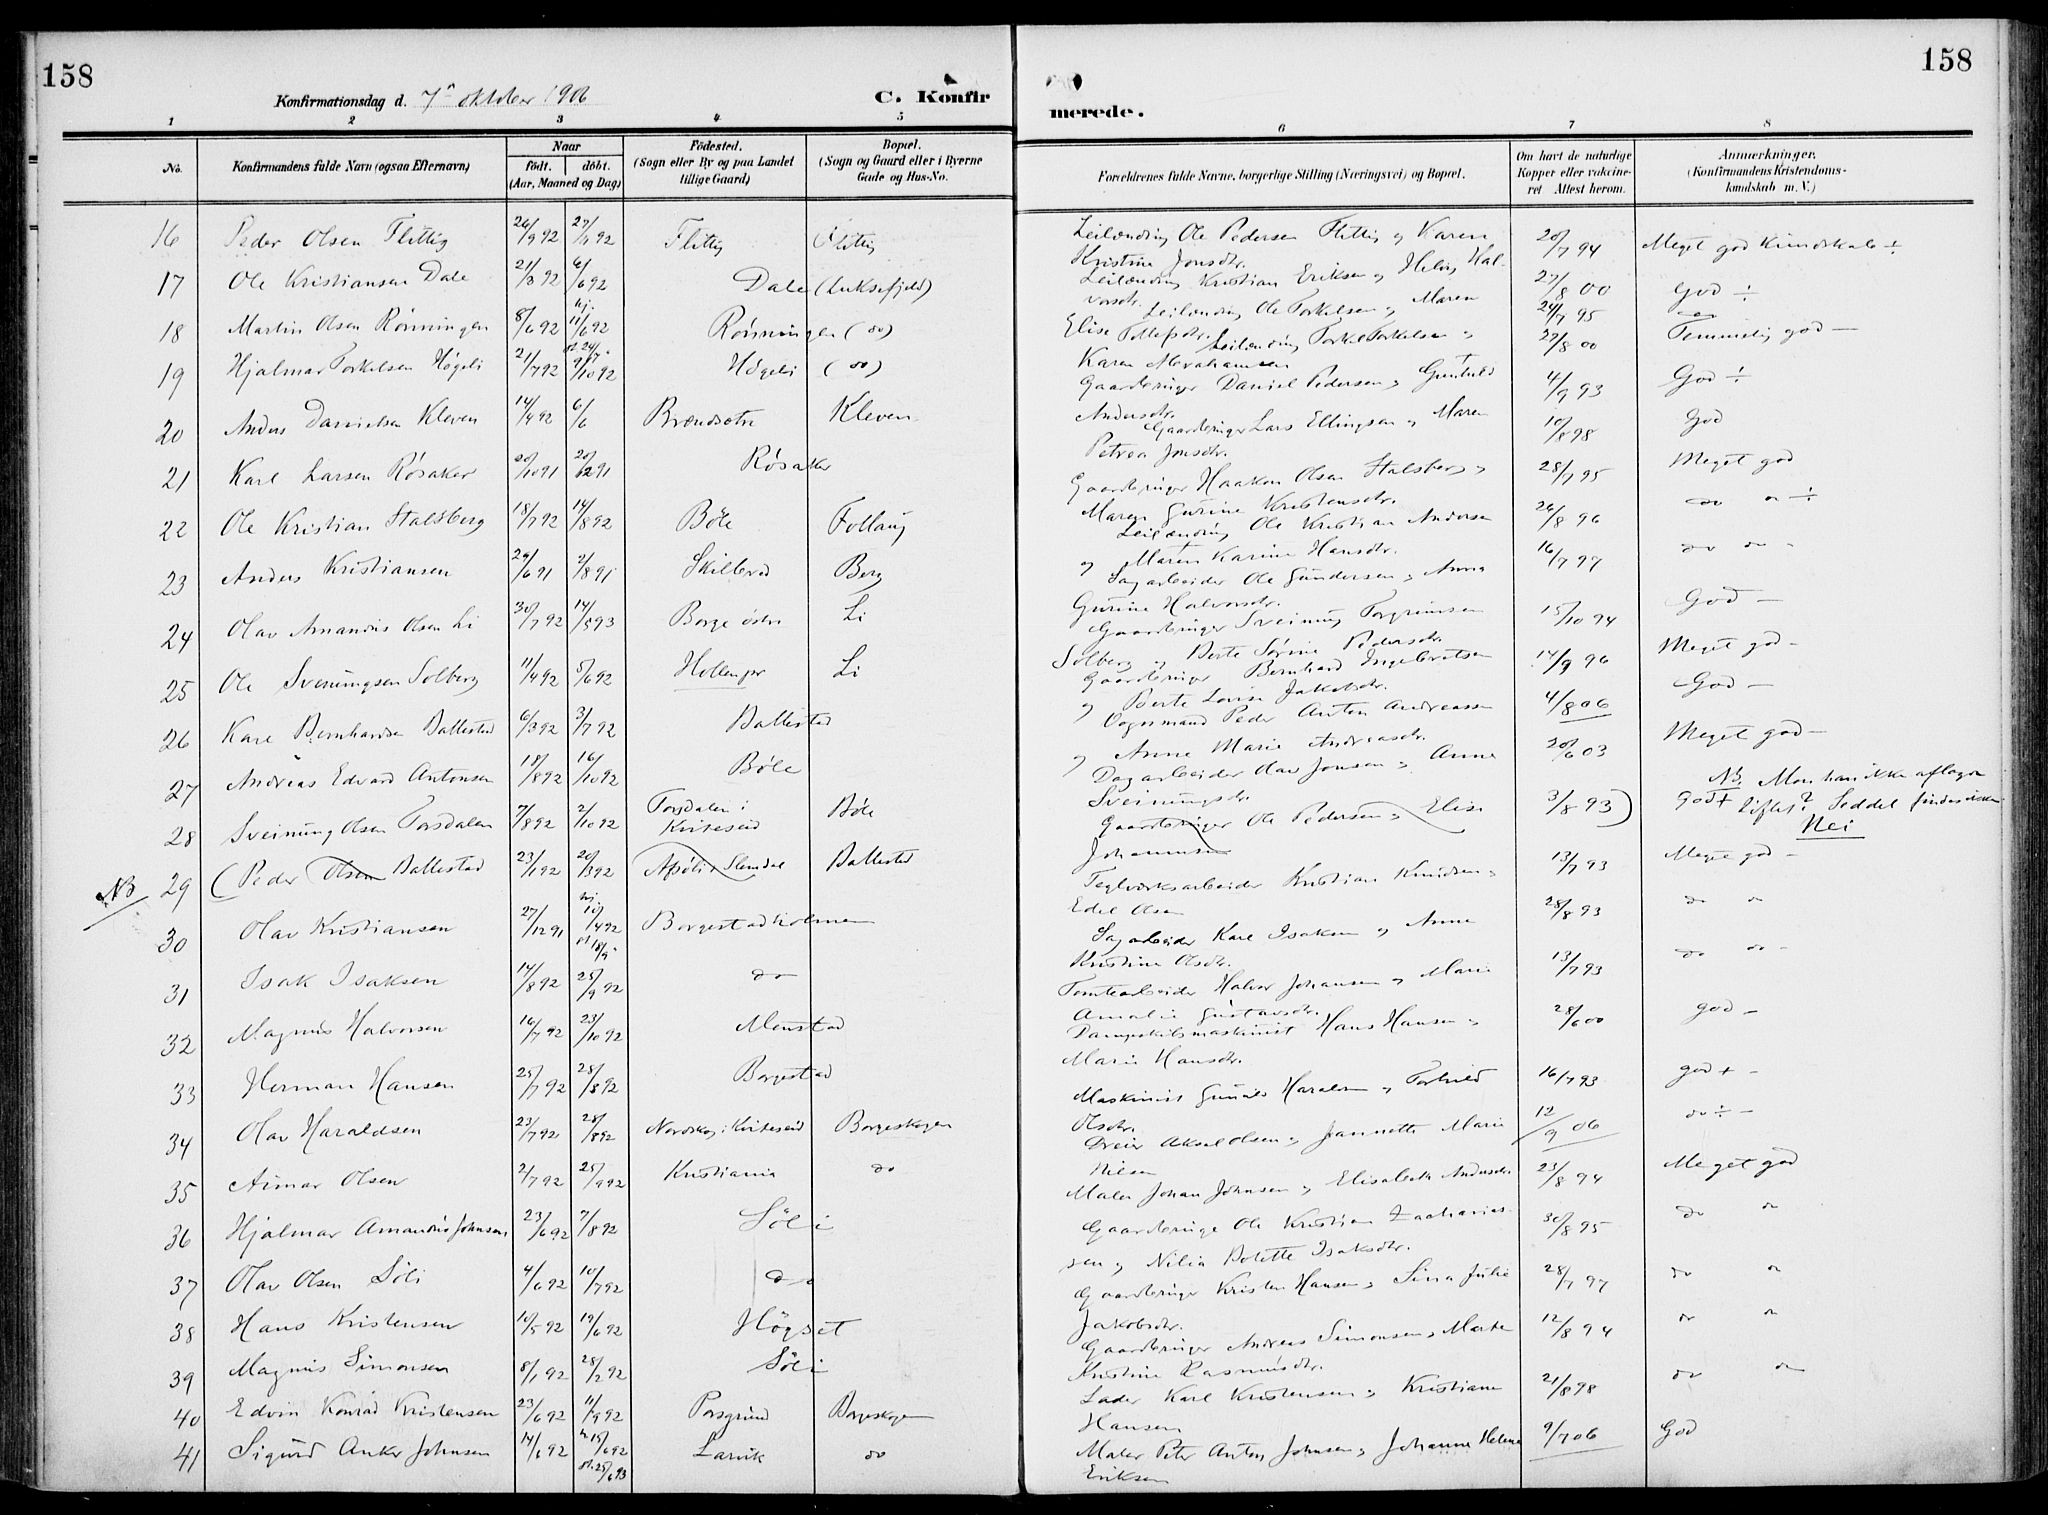 158
Konfirmationsdag d. 7de oktober 1906
C. Konfir
1 2 3 4 5
No.
Konfirmandens fulde Navn (ogsaa Efternavn)
Naar
født. døbt.
(Aar, Maaned og Dag)
Fødested.
(Sogn eller By og paa Landet
tillige Gaard)
Bopæl.
(Sogn og Gaard eller i Byerne
Gade og Hus-No.
16 Peder Olsen Flittig 24/9 92 92 Flittig Flittig
17 Ole Kristiansen Dale 21/3 92 6/6 92 Dale (Luksefjeld)
18 Martin Olsen Rønningen 8/6 92 hj. 11/6 92 Rønningen (do)
19 Hjalmar Torkelsen Høgeli 21/7 92 9/10 92 Høgeli (do)
20 Anders Danielsen Kleven 14/4 92 6/6 Brændsætre Kleven
21 Karl Larsen Røsaker 20/10 91 20/12 91 Røsaker
22 Ole Kristian Stalsberg 18/7 92 14/8 92 Bøle Follaug
23 Anders Kristiansen 29/6 91 2/8 91 Skilbred Berg
24 Olav Amandus Olsen Li 30/7 92 14/5 93 Borge østre Li
25 Ole Sveinungsen Solberg 11/4 92 5/6 92 Hollenpr Li
26 Karl Bernhardsen Ballestad 6/3 92 3/7 92 Ballestad
27 Andreas Edvard Antonsen 18/8 92 16/10 92 Bøle
28 Sveinung Olsen Torsdalen 7/8 92 2/10 92 Torsdalen i Kviteseid Bøle
NB 29 (Peder Olsen Ballestad 23/1 92 20/3 92 Slemdal Ballestad
30 Olav Kristiansen 27/12 91 hj. 10/4 92 Borgestadholmen
31 Isak Isaksen 14/8 92 25/9 92 do
32 Magnus Halvorsen 16/7 92 23/10 92 Menstad
33 Herman Hansen 25/7 92 28/8 92 Borgestad
34 Olav Haraldsen 23/7 92 28/8 92 Nordskog i Kviteseid Borgeskogen
35 Aimar Olsen 2/7 92 25/9 92 Kristiania do
36 Hjalmar Amandus Johnsen 23/6 92 7/8 92 Søli
37 Olav Olsen Søli 4/6 92 10/7 92 do
38 Hans Kristensen 10/5 92 19/6 92 Högset
39 Magnus Simonsen 8/1 92 28/2 92 Søli
40 Edvin Konrad Kristensen 23/6 92 11/9 92 Porsgrund Borgeskogen
41 Sigurd Anker Johnsen 14/6 92 h. 15/6 92 st. 25/6 93 Larvik do
158
merede.
6 7 8
Forældrenes fulde Navne, borgerlige Stilling (Næringsvei) og Bopæl.
Om havt de naturlige
Kopper eller vakcine-
ret Attest herom.
Anmærkninger.
(Konfirmandens Kristendoms-
kundskab m. V.)
Leilænding Ole Pedersen Flittig og Karen
Kristine Jonsdtr. 20/7 94 Meget god Kundskab ÷
Leilænding Kristian Eriksen og Helvig Hal-
vorsdr. 27/8 00 God ÷
Leilænding Ole Torkelsen og Maren
Elise Tollefsdtr. 24/7 95 do
Leilænding Torkel Torkelsen og
Karen Abrahamsen 27/8 00 Temmelig god —
Gaardbruger Daniel Pedersen og Gunhild
Andersdtr. 4/9 93 God ÷
Gaardbruger Lars Ellingsen og Maren
Petrea Jonsdtr. 10/8 98 God
Gaardbruger Haakon Olsen Stalsberg og
Maren Gurine Kristensdtr. 28/7 95 Meget god
Leilænding Ole Kristian Andersen
og Maren Karine Hansdtr. 26/8 96 do do ÷
Sagarbeider Ole Gundersen og Anna
Gurine Halvorsdtr. 16/7 97 do do -
Gaardbruger Sveinung Torgrimsen
Solberg og Berte Sørine Pedersdtr. 15/10 94 God —
Gaardbruger Bernhard Ingebretsen
og Berte Lovise Jakobsdtr. 14/9 96 Meget god -
Vognmand Peder Anton Andreassen
og Anne Marie Andreasdtr. 4/8 06 God —
Dagarbeider Olav Jonsen og Anne
Sveinungsdr. 20/6 03 Meget god -
Gaardbruger Ole Pedersen og Elise
Johannesen 3/8 93) god + NB. Mon han ikke aflagde
løftet? Seddel findes ikke
Nei
Teglværksarbeider Kristian Knudsen og
Edel Olsen 13/7 93 Meget god -
Sagarbeider Karl Isaksen og Anne
Kristine Olsdtr. 28/8 93 do do
Tomtearbeider Halvor Johansen og Marie
Amalie Gustavsdtr. 13/7 93 do do -
Dampskibsmaskinist Hans Hansen og
Marie Hansdtr. 28/6 00 god -
Maskinist Gunnar Haraldsen og Torhild
Olsdtr. 16/7 93 god + -
Dreier Aksel Olsen og Jeannette Marie
Nilsen 12/9 06 do ÷ -
Maler Johan Johnsen og Elisabeth Andersdtr. 23/8 94 Meget god
Gaardbruger Ole Kristian Zacharias-
sen og Nilia Bolette Isaksdtr. 30/8 95 do do
Gaardbruger Kristen Hansen og Sina Julie
Jakobsdtr. 28/7 97 do do
Gaardbruger Andreas Simonsen og Marte
Kristine Rasmusdtr. 12/8 94 do do
Lader Karl Kristensen og Kristiane
Hansen 21/8 98 do do
Maler Peter Anton Johnsen og Johanne Helene
Eriksen 9/7 06 God